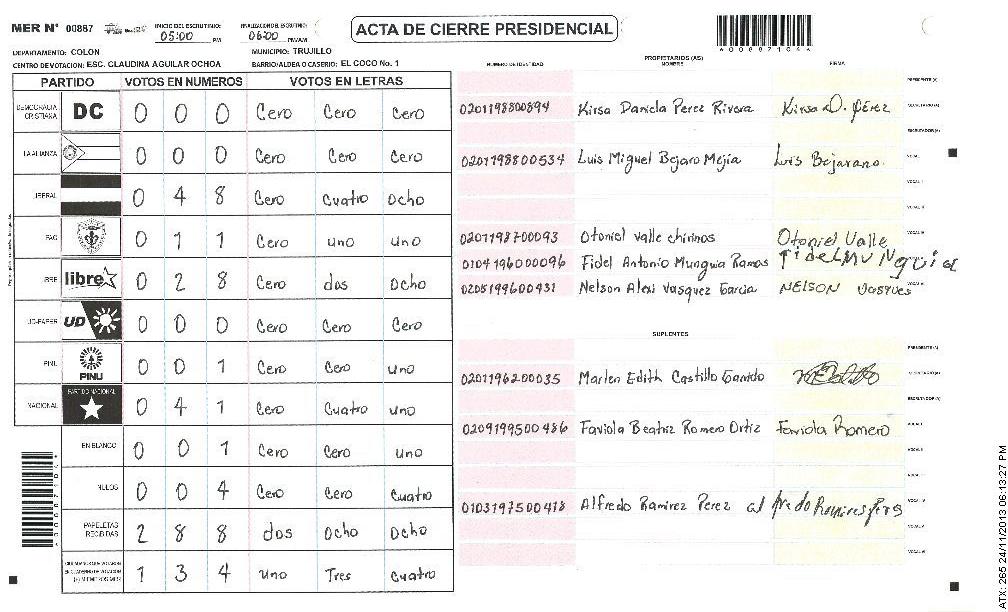 MER N° 00887 INICIO DEL ESCRUTINIO: 05:00 PM FINALIZACION DEL ESCRUTINIO: 06:00 PM/AM
ACTA DE CIERRE PRESIDENCIAL
DEPARTAMENTO: COLON MUNICIPIO: TRUJILLO
CENTRO DE VOTACION: ESC. CLAUDINA AGUILAR OCHOA BARRIO/ALDEA O CASERIO: EL COCO No. 1
PARTIDO VOTOS EN NUMEROS VOTOS EN LETRAS
DEMOCRACIA CRISTIANA DC 0 0 0 Cero Cero Cero
LA ALIANZA 0 0 0 Cero Cero Cero
LIBERAL 0 4 8 Cero Cuatro Ocho
PAC 0 1 1 Cero uno uno
LIBRE libre 0 2 8 Cero dos Ocho
UD-FAPER UD 0 0 0 Cero Cero Cero
PINU PINU 0 0 1 Cero Cero uno
NACIONAL PARTIDO NACIONAL 0 4 1 Cero Cuatro uno
EN BLANCO 0 0 1 Cero Cero uno
NULOS 0 0 4 Cero Cero Cuatro
PAPELETAS RECIBIDAS 2 8 8 dos Ocho Ocho
1 3 4 uno Tres Cuatro
PROPIETARIOS (AS)
NUMERO DE IDENTIDAD NOMBRE FIRMA
PRESIDENTE (A)
0201198800894 Kirsa Daniela Perez Rivera Kirsa D. Pérez SECRETARIO (A)
ESCRUTADOR (A)
0201198800534 Luis Miguel Bejaro Mejia Luis Bejarano VOCAL I
0201198700093 Otoniel Valle chirinos Otoniel Valle
0104196000096 Fidel Antonio Munguia Ramos Fidel Munguia
0205199600431 Nelson Alexi Vasquez Garcia NELSON Vasques
SUPLENTES
PRESIDENTE (A)
0201196200035 Marlen Edith Castillo Garrido SECRETARIO (A)
ESCRUTADOR (A)
0209199500486 Faviola Beatriz Romero Ortiz Faviola Romero
0103197500418 Alfredo Ramirez Perez
ATX: 265 24/11/2013 06:13:27 PM